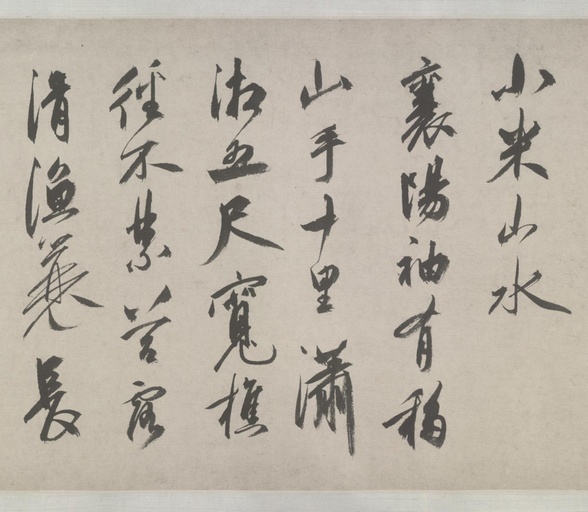 小米山水
襄陽袖有移
山手十里瀟
湘五尺寬樵
徑不禁苔露
清漁蓑長